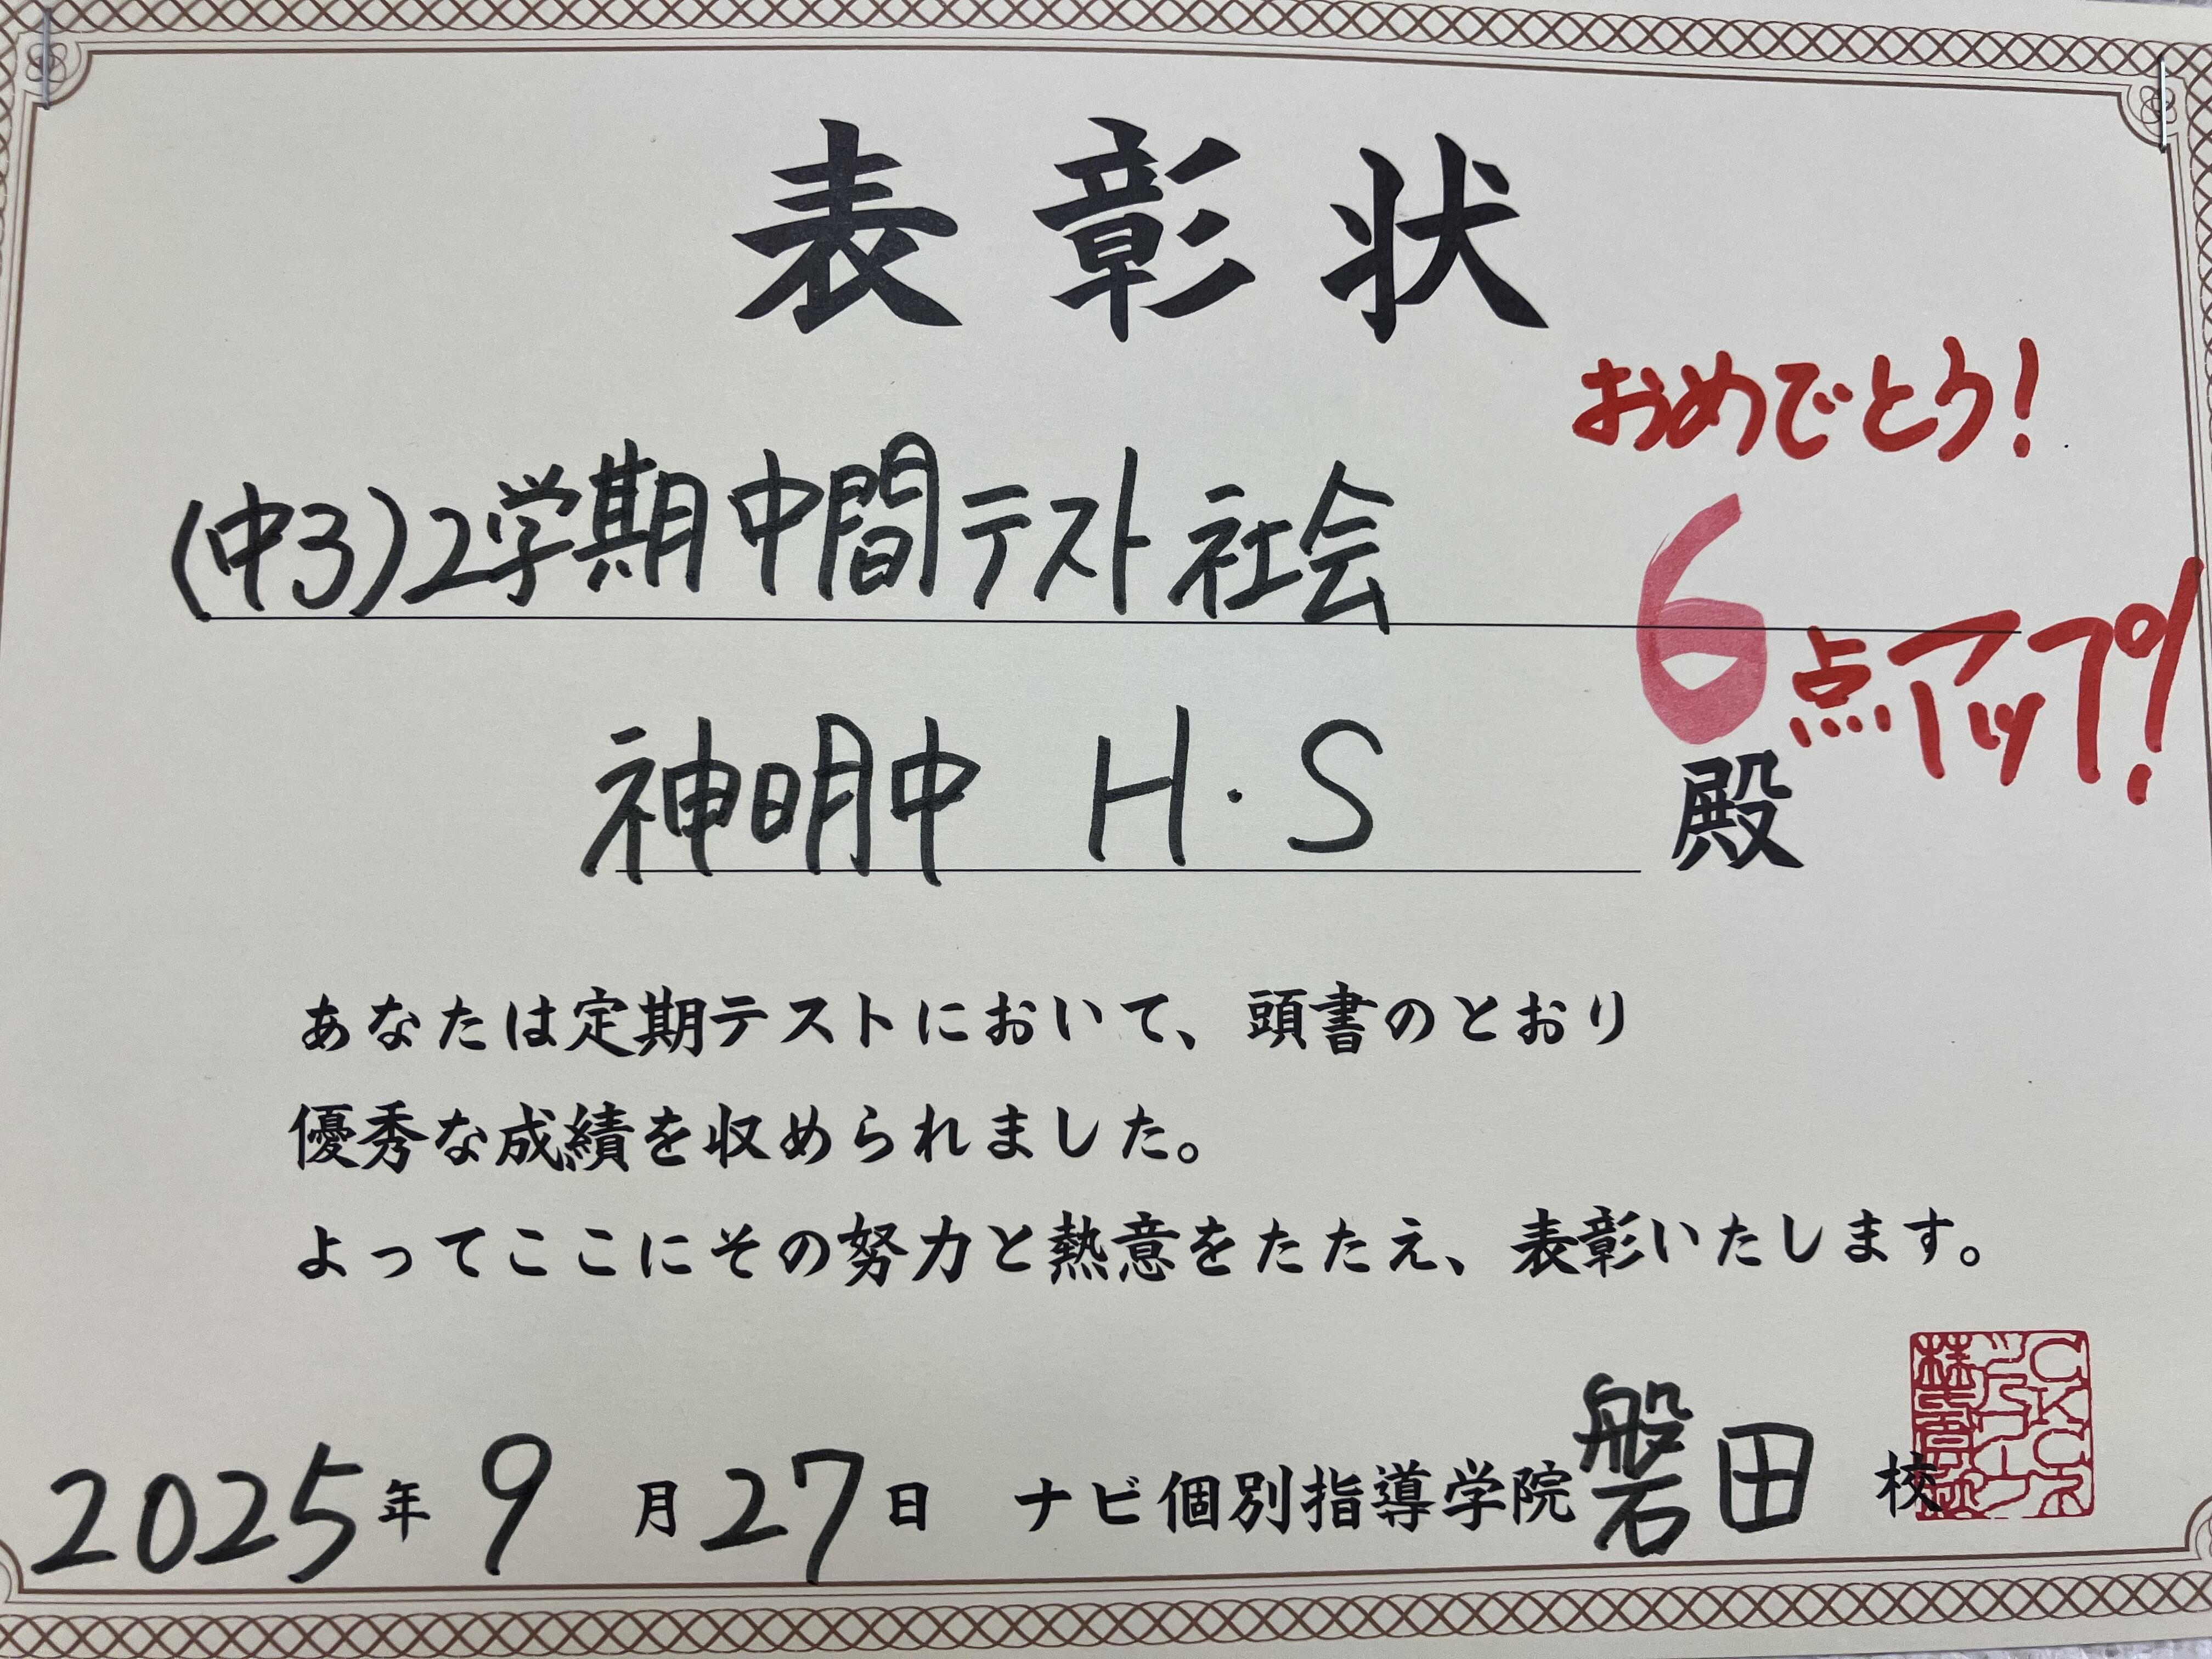 表彰状
おめでとう!
(中3)2学期中間テスト社会
6点アップ!
神明中 H・S 殿
あなたは定期テストにおいて、頭書のとおり
優秀な成績を収められました。
よってここにその努力と熱意をたたえ、表彰いたします。
2025年9月27日 ナビ個別指導学院磐田校